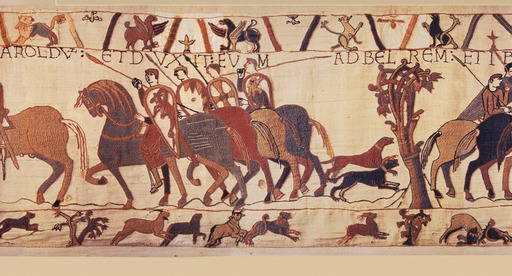 AROLDV : ET DVXIT EVM AD BELREM : ET